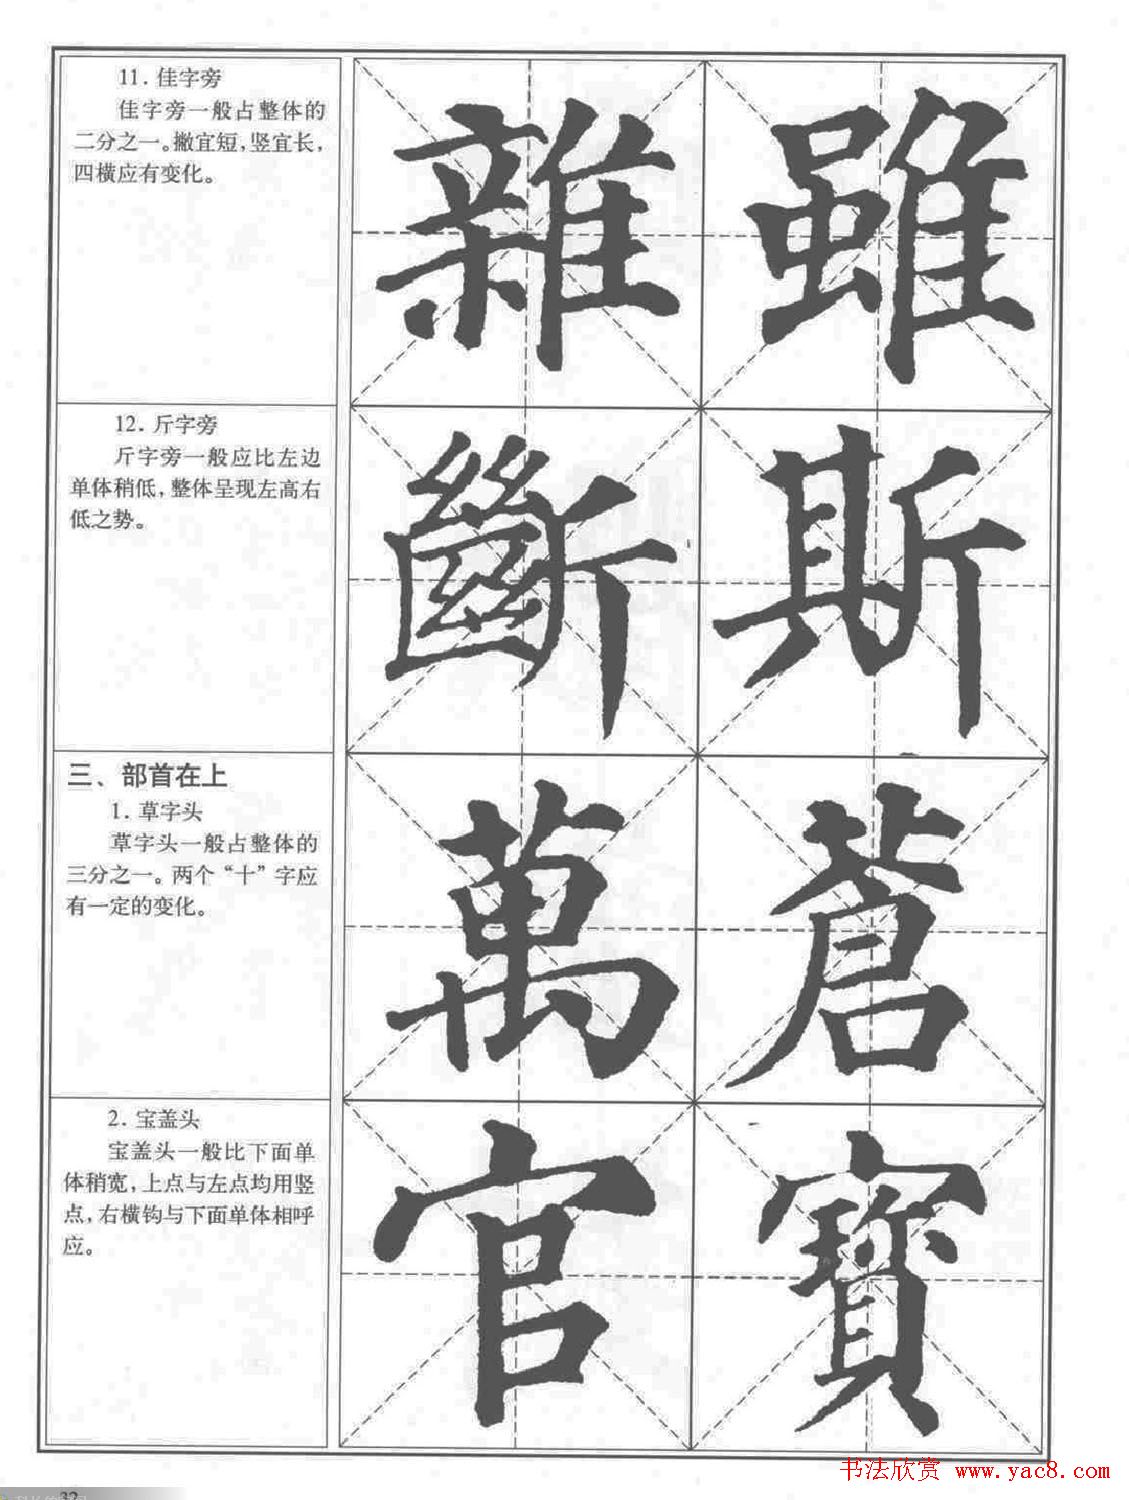 11. 佳字旁
佳字旁一般占整体的
二分之一。撇宜短，竖宜长，
四横应有变化。
雜 雖
12. 斤字旁
斤字旁一般应比左边
单体稍低，整体呈现左高右
低之势。
斷 斯
三、部首在上
1. 草字头
草字头一般占整体的
三分之一。两个“十”字应
有一定的变化。
萬 蒼
2. 宝盖头
宝盖头一般比下面单
体稍宽，上点与左点均用竖
点，右横钩与下面单体相呼
应。
官 寶
书法欣赏 www.yac8.com
32